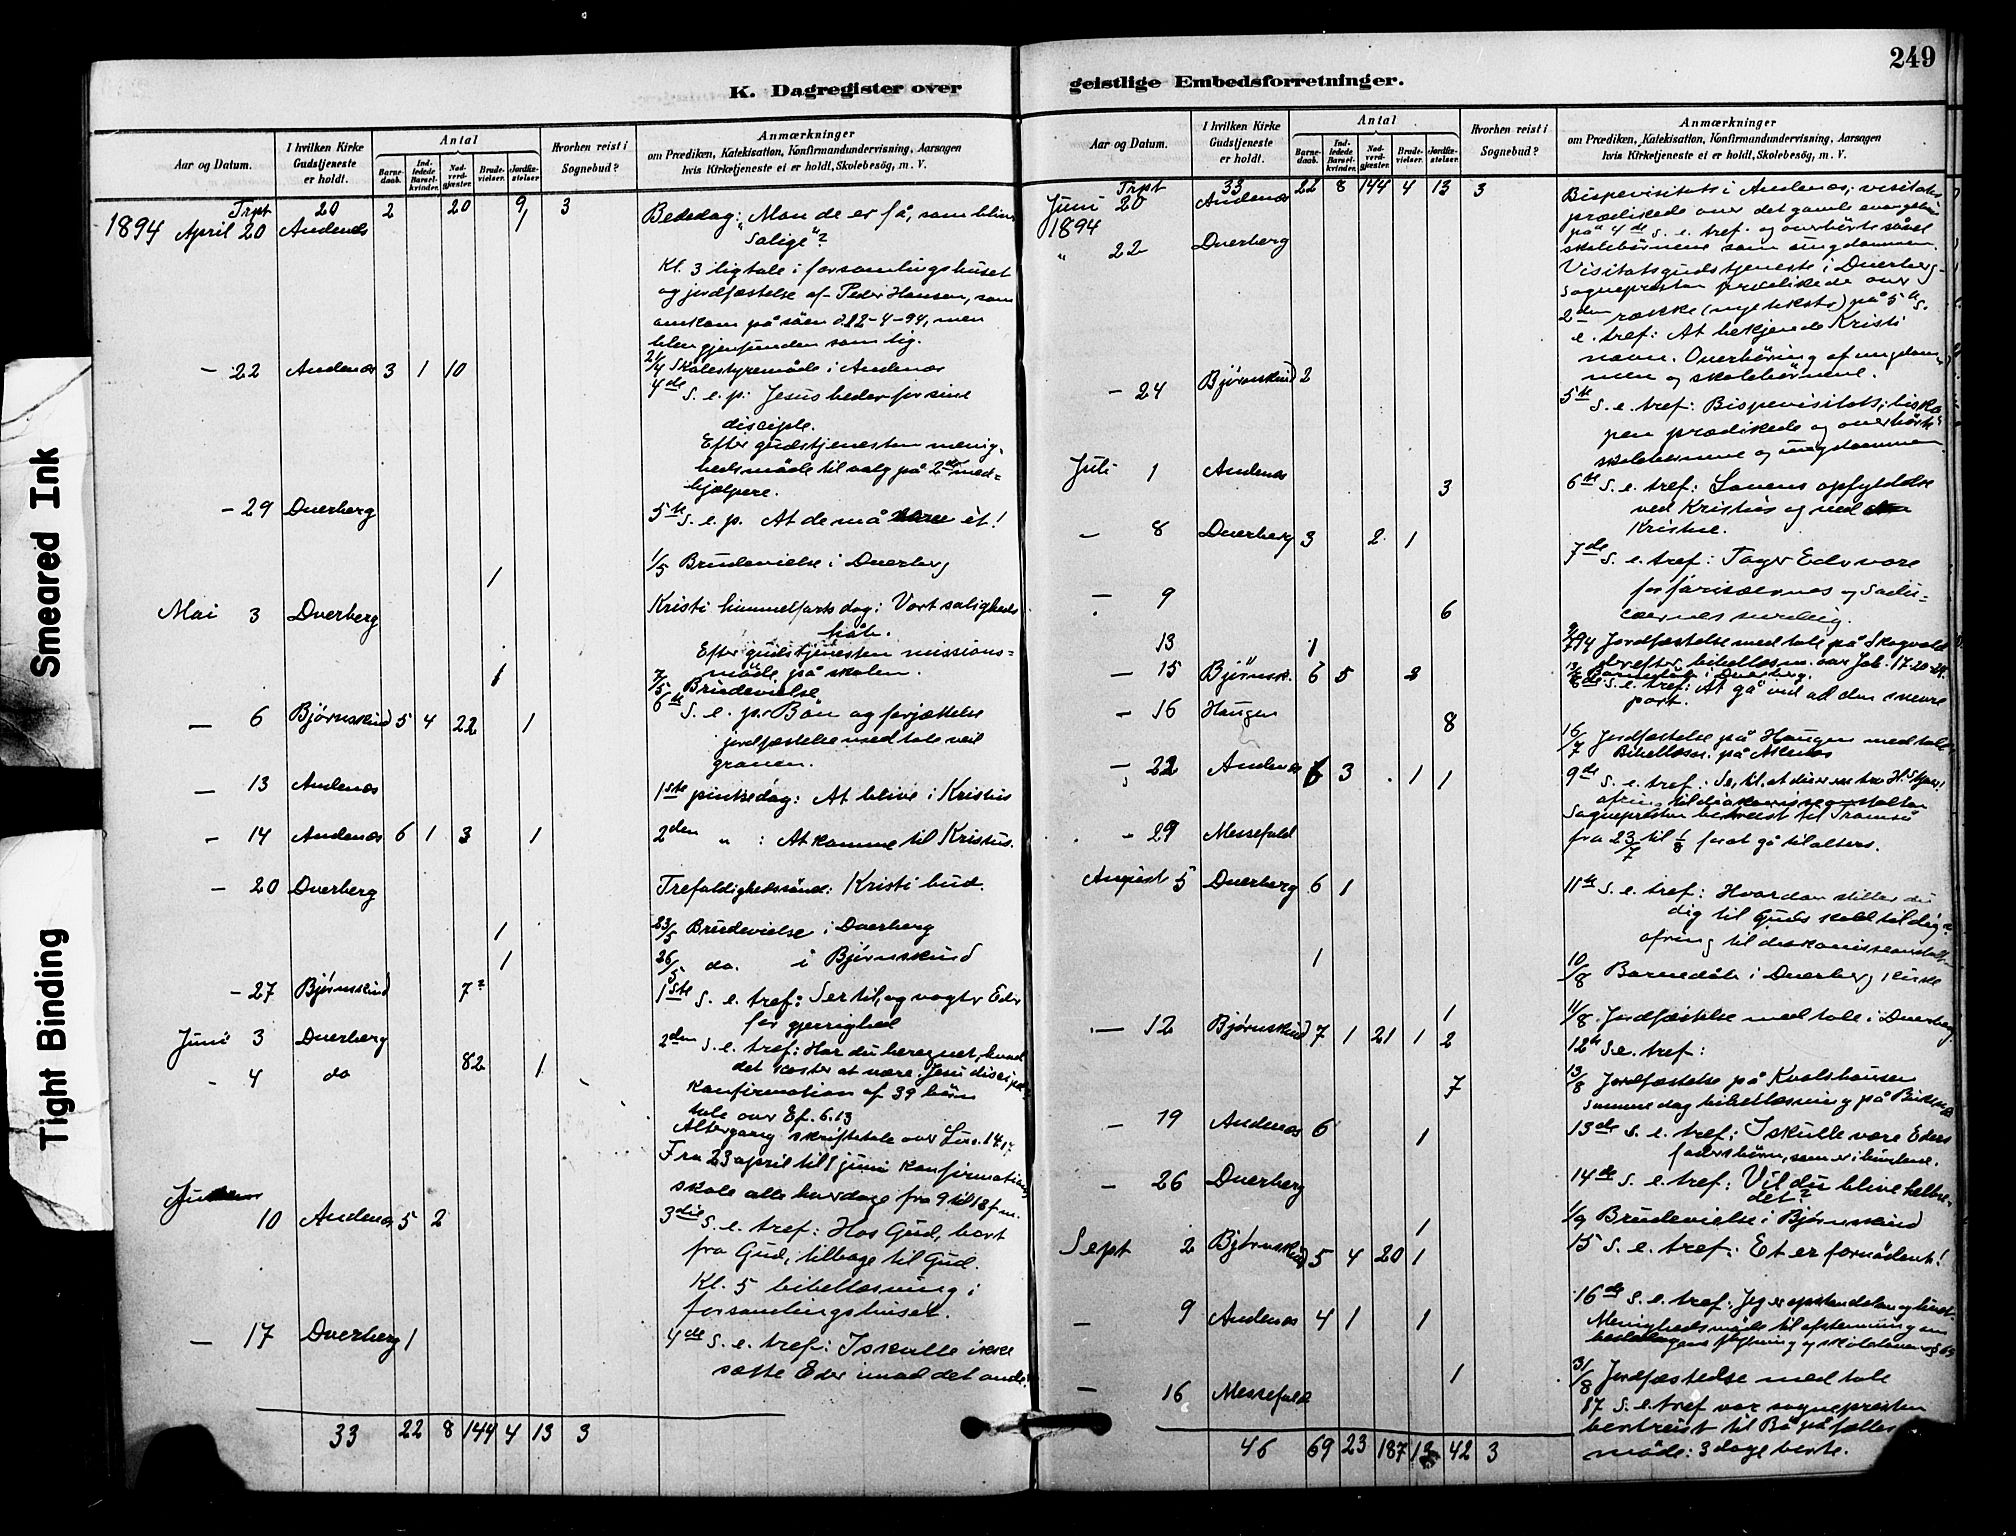 249
K. Dagregister over geistlige Embedsforretninger.
Smeared Ink
Tight Binding
Aar og Datum.
I hvilken Kirke Gudstjeneste er holdt.
Antal
Barnedaab.
Indledede Barselkvinder.
Nadverdgjæster.
Brudevielser.
Jordfæstelser
Hvorhen reist i Sognebud?
Anmærkninger
om Prædiken, Katekisation, Konfirmandundervisning, Aarsagen
hvis Kirketjeneste ei er holdt, Skolebesög, m. V.
Trpt 20 2 20 9 3
1894 April 20 Andenes 1 Bededag: Mon de er få, som blive
salige?
Kl. 3 ligtale i forsamlingshuset
og jordfæstelse af Peder Hansen, som
omkom på søen d. 12-4-94, men
blev gjenfunden som lig.
21/4 Skolestyremöde i Andenes
- 22 Andenes 3 1 10 4de S. e. p: Jesus beder for sine
disciple.
Efter gudstjenesten menig-
hedsmöde til valg på 2 med-
hjælpere.
- 29 Dverberg 5te S. e. p. At de må være ét!
1 1/5 Brudevielse i Dverberg
Mai 3 Dverberg Kristi himmelfarts dag: Vort saligheds
håb.
Efter gudstjenesten missions-
möde på skolen.
1 7/5 Brudevielse
- 6 Bjørnskind 5 4 22 1 6te S. e. p: Bön og forjættelse
jordfæstelse med tale ved
graven.
- 13 Andenes 1ste pintsedag: At blive i Kristus
- 14 Andenes 6 1 3 1 2den " : At komme til Kristus.
- 20 Dverberg Trefoldighedssönd: Kristi bud.
1 23/5 Brudevielse i Dverberg
1 26/5 do. i Bjørnskind
- 27 Bjørnskind 7 1ste S. e. tref: Ser til, og vogter Eder
for gjerrighed
Juni 3 Dverberg 2den S. e. tref: Har du beregnet, hvad
det koster at være Jesu discipel
- 4 do 82 1 Konfirmation af 39 börn
tale over Ef. 6.13
Altergang skriftetale over Luc. 14.17
Fra 23 april til 1 juni konfirmations
skole alle hverdage
10 Andenes 5 2 3die S. e. tref: Hos Gud, bort
fra Gud, tilbage til Gud.
Kl. 5 bibellæsning i
forsamlingshuset.
- 17 Dverberg 1 4de S. e. tref: I skulle ikke
sætte Eder imod det onde.
33 22 8 144 4 13 3
Aar og Datum.
I hvilken Kirke Gudstjeneste er holdt.
Antal
Barnedaab.
Indledede Barselkvinder.
Nadverdgjæster.
Brudevielser.
Jordfæstelser.
Hvorhen reist i Sognebud?
Anmærkninger
om Prædiken, Katekisation, Konfirmandundervisning, Aarsagen
hvis Kirketjeneste ei er holdt, Skolebesög, m. V.
Trpt 33 22 8 144 4 13 3
Juni 20 Andenes Bispevisitats i Andenes; visitator
1894 prædikede over det gamle evangelium
på 4de S. e. tref. og overhörte såvel
skolebörnene som ungdommen.
" 22 Dverberg Visitatsgudstjeneste i Dverberg
Sognepresten prædikede over
2den række (nye tekster) på 5te S.
e. tref: At bekjende Kristi
navn. Overhöring af ungdom-
men og skolebörnene.
- 24 Bjørnskind 2 5te S. e. tref: Bispevisitats; bisko-
pen prædikede og overhörte
skolebörnene og ungdommen
Juli 1 Andenes 3 6te S. e. tref: Lovens opfyldelse
ved Kristus og ved
Kristne.
- 8 Dverberg 3 2 1 7de S. e. tref: Tager Eder vare
for farisæernes og Sadu-
cæernes surdeig.
- 9 6 9/7 94 Jordfæstelse med tale på Skogvold
derefter bibellæsn. over Joh. 17.20-24.
13 1 13/7 Barnedåb i Dverberg.
- 15 Bjørnsk. 6 5 2 8de S. e. tref: At gå ind ad den snevre
port.
- 16 Haugen 8 16/7 Jordfæstelse på Haugen med tale
Bibellæsn. på Åknes
- 22 Andenes 6 3 1 1 9de S. e. tref:
ofring til diakonisseanstalten
Sognepresten bortreist til Tromsö
- 29 Messefald fra 23/7 til 1/8 forat gå til alters.
August 5 Dverberg 6 1 11te S. e. tref: Hvordan stiller du
dig til Guds kald til dig?
ofring til diakonisseanstalten
1 10/8 Barnedåb i Dverberg kirke
1 11/8 Jordfæstelse med tale i Dverberg
- 12 Bjørnskind 7 1 21 1 2 12te S. e. tref:
7 13/8 Jordfæstelse på Kvalshausen
samme dag bibellæsning på
- 19 Andenes 6 1 13de S. e. tref: I skulle være Eders
faders börn, som er i himlene.
- 26 Dverberg 14de S. e. tref: Vil du blive helbre-
det?
1 1/9 Brudevielse i Bjørnskind
Sept 2 Bjørnskind 5 4 20 1 15 S. e. tref: Et er fornödent!
- 9 Andenes 4 1 1 16de S. e. tref: Jeg er opstandelsen og livet
Menighedsmöde til afstemning om
1 31/8 Jordfæstelse med tale
- 16 Messefald 17 S. e. tref var sognepresten
bortreist til Bö på fælles
möde: 3 dage borte.
46 69 23 187 13 42 3